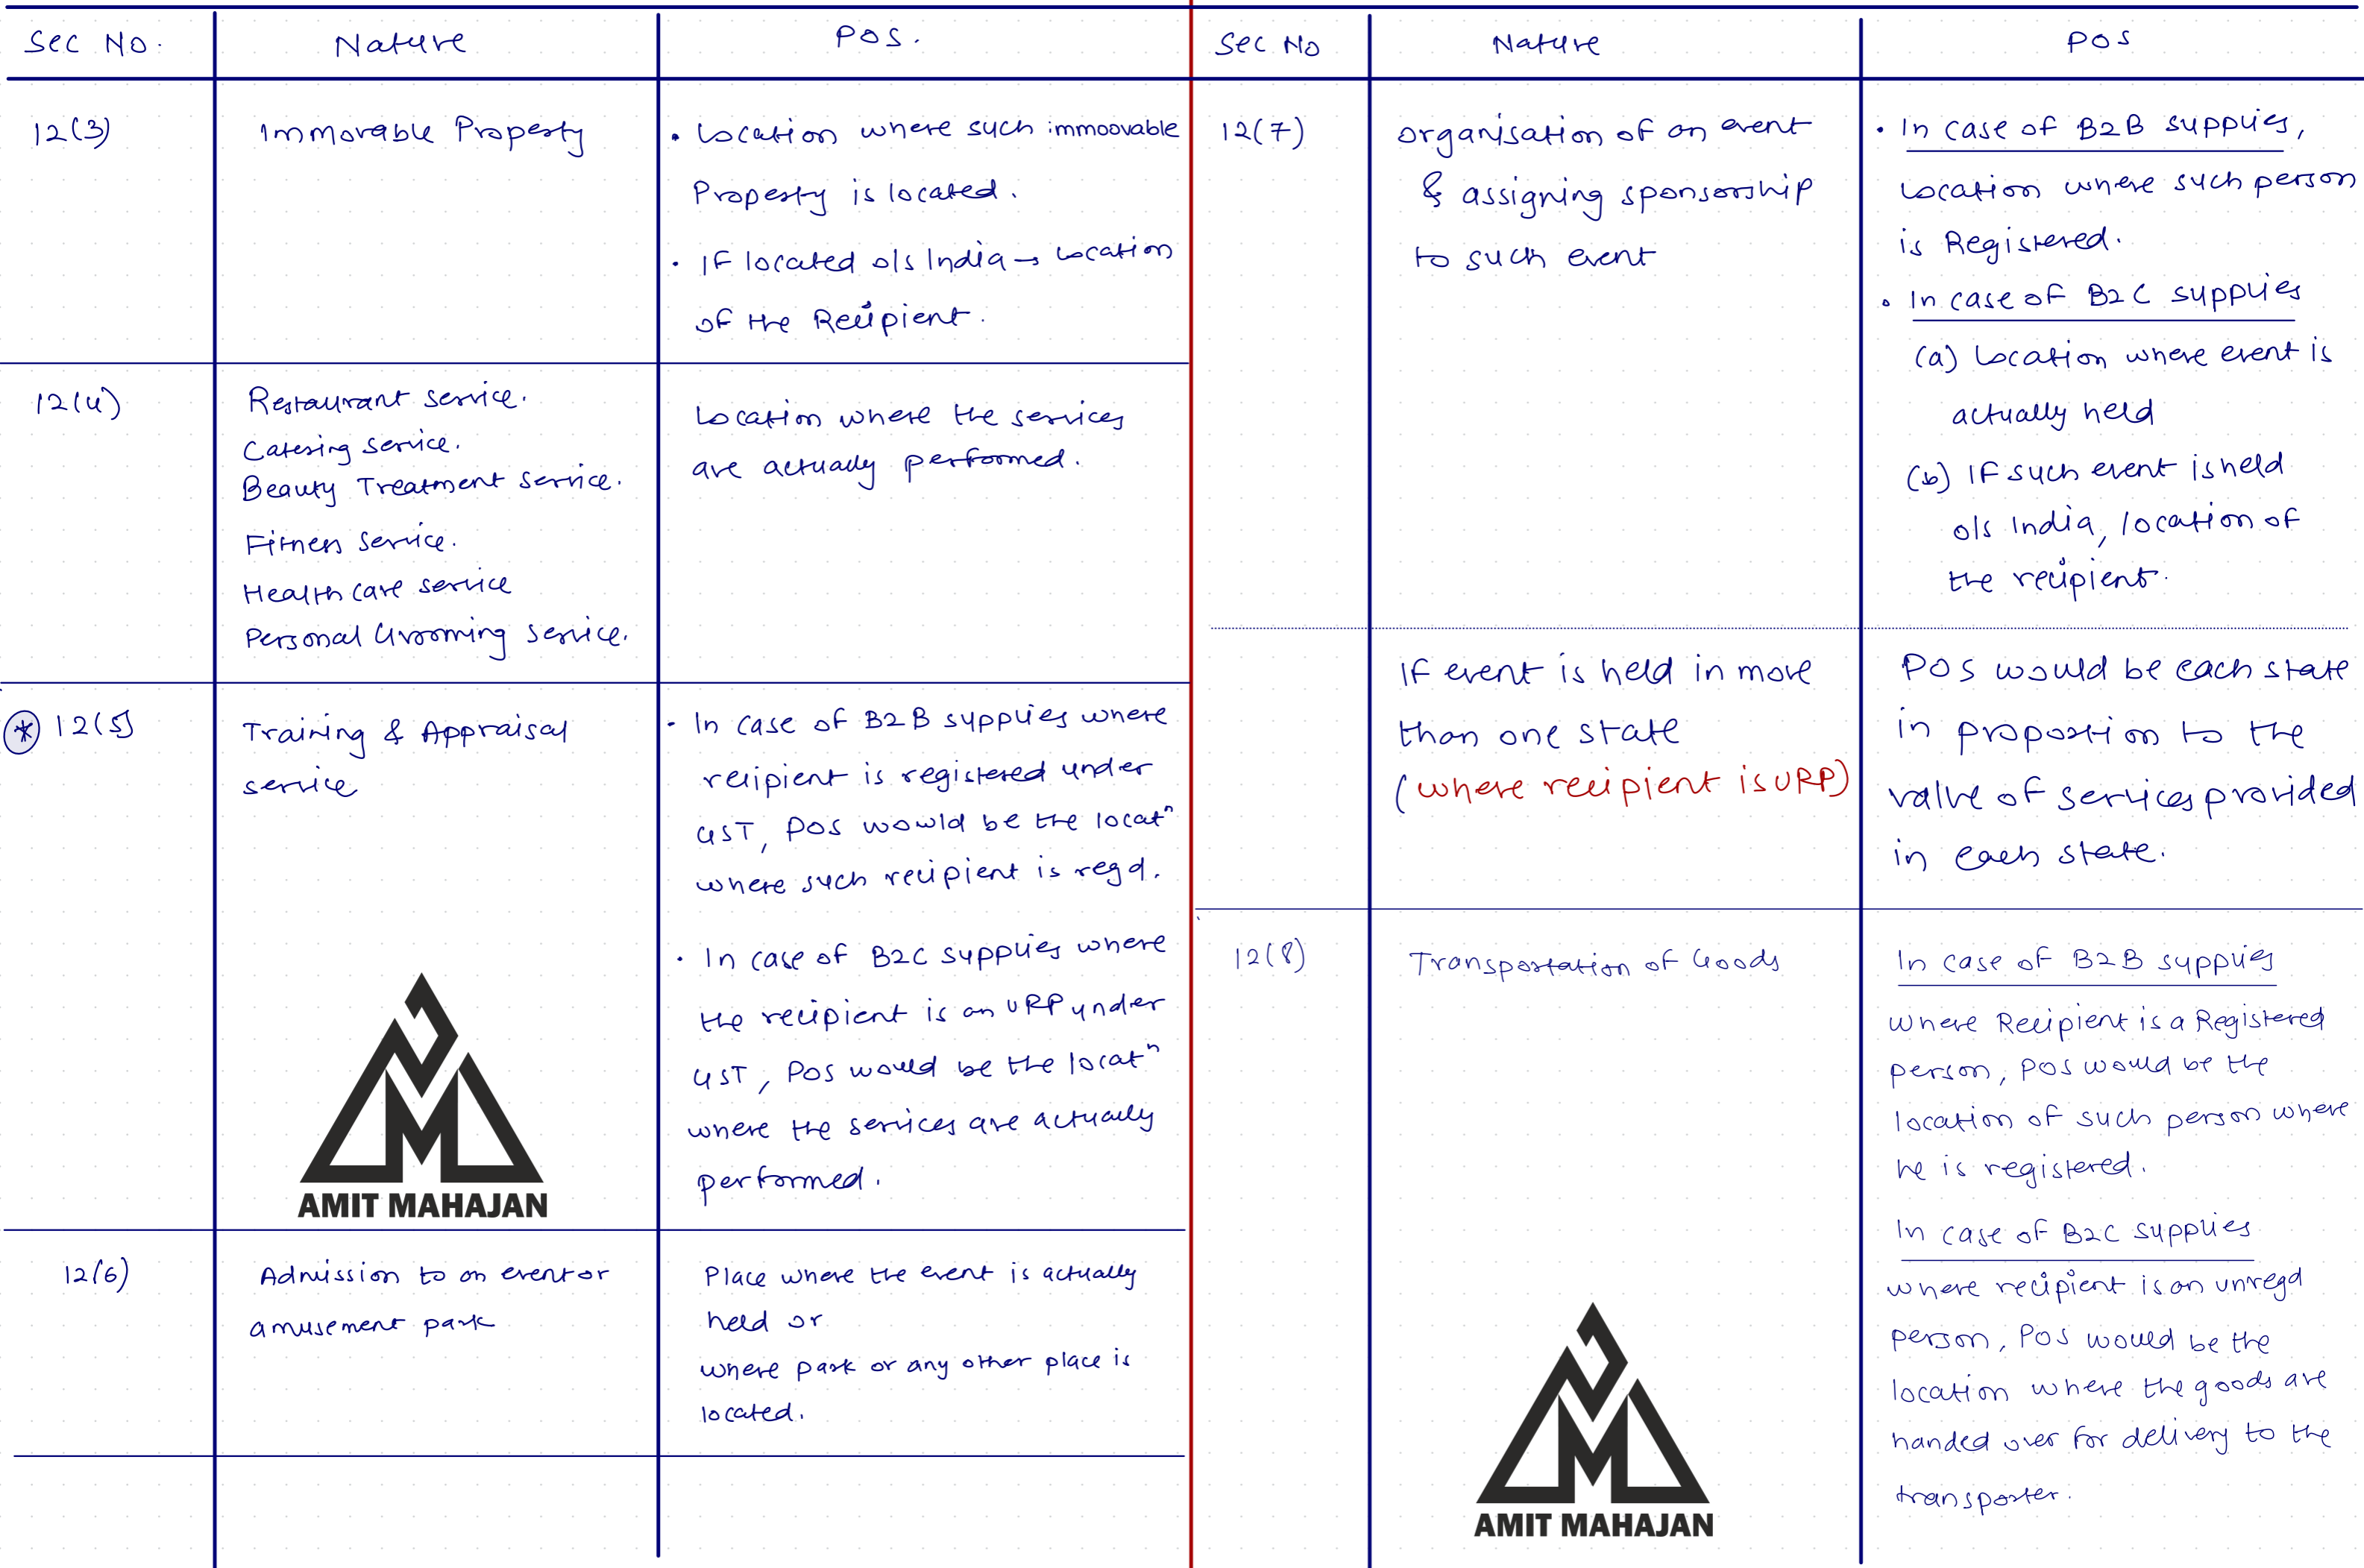 Sec No.
Nature
POS.
12(3)
Immovable Property
• Location where such immoovable
Property is located.
• If located o/s India → Location
of the Recipient.
12(4)
Restaurant service.
Catering service.
Beauty Treatment service.
Fitness service.
Health care service
Personal Grooming service.
Location where the services
are actually performed.
* 12(5)
Training & Appraisal
service
• In case of B2B supplies where
recipient is registered under
GST, POS would be the locatⁿ
where such recipient is regd.
• In case of B2C supplies where
the recipient is an URP under
GST, POS would be the locatⁿ
where the services are actually
performed.
AMIT MAHAJAN
12(6)
Admission to an event or
amusement park
Place where the event is actually
held or
where park or any other place is
located.
Sec No
Nature
POS
12(7)
organisation of an event
& assigning sponsorship
to such event
• In case of B2B supplies,
Location where such person
is Registered.
• In case of B2C supplies
(a) Location where event is
actually held
(b) If such event is held
o/s India, location of
the recipient.
If event is held in more
than one state
(where recipient is URP)
POS would be each state
in proportion to the
value of services provided
in each state.
12(8)
Transportation of Goods
In case of B2B supplies
where Recipient is a Registered
person, POS would be the
location of such person where
he is registered.
In case of B2C supplies
where recipient is an unregd
person, POS would be the
location where the goods are
handed over for delivery to the
transporter.
AMIT MAHAJAN